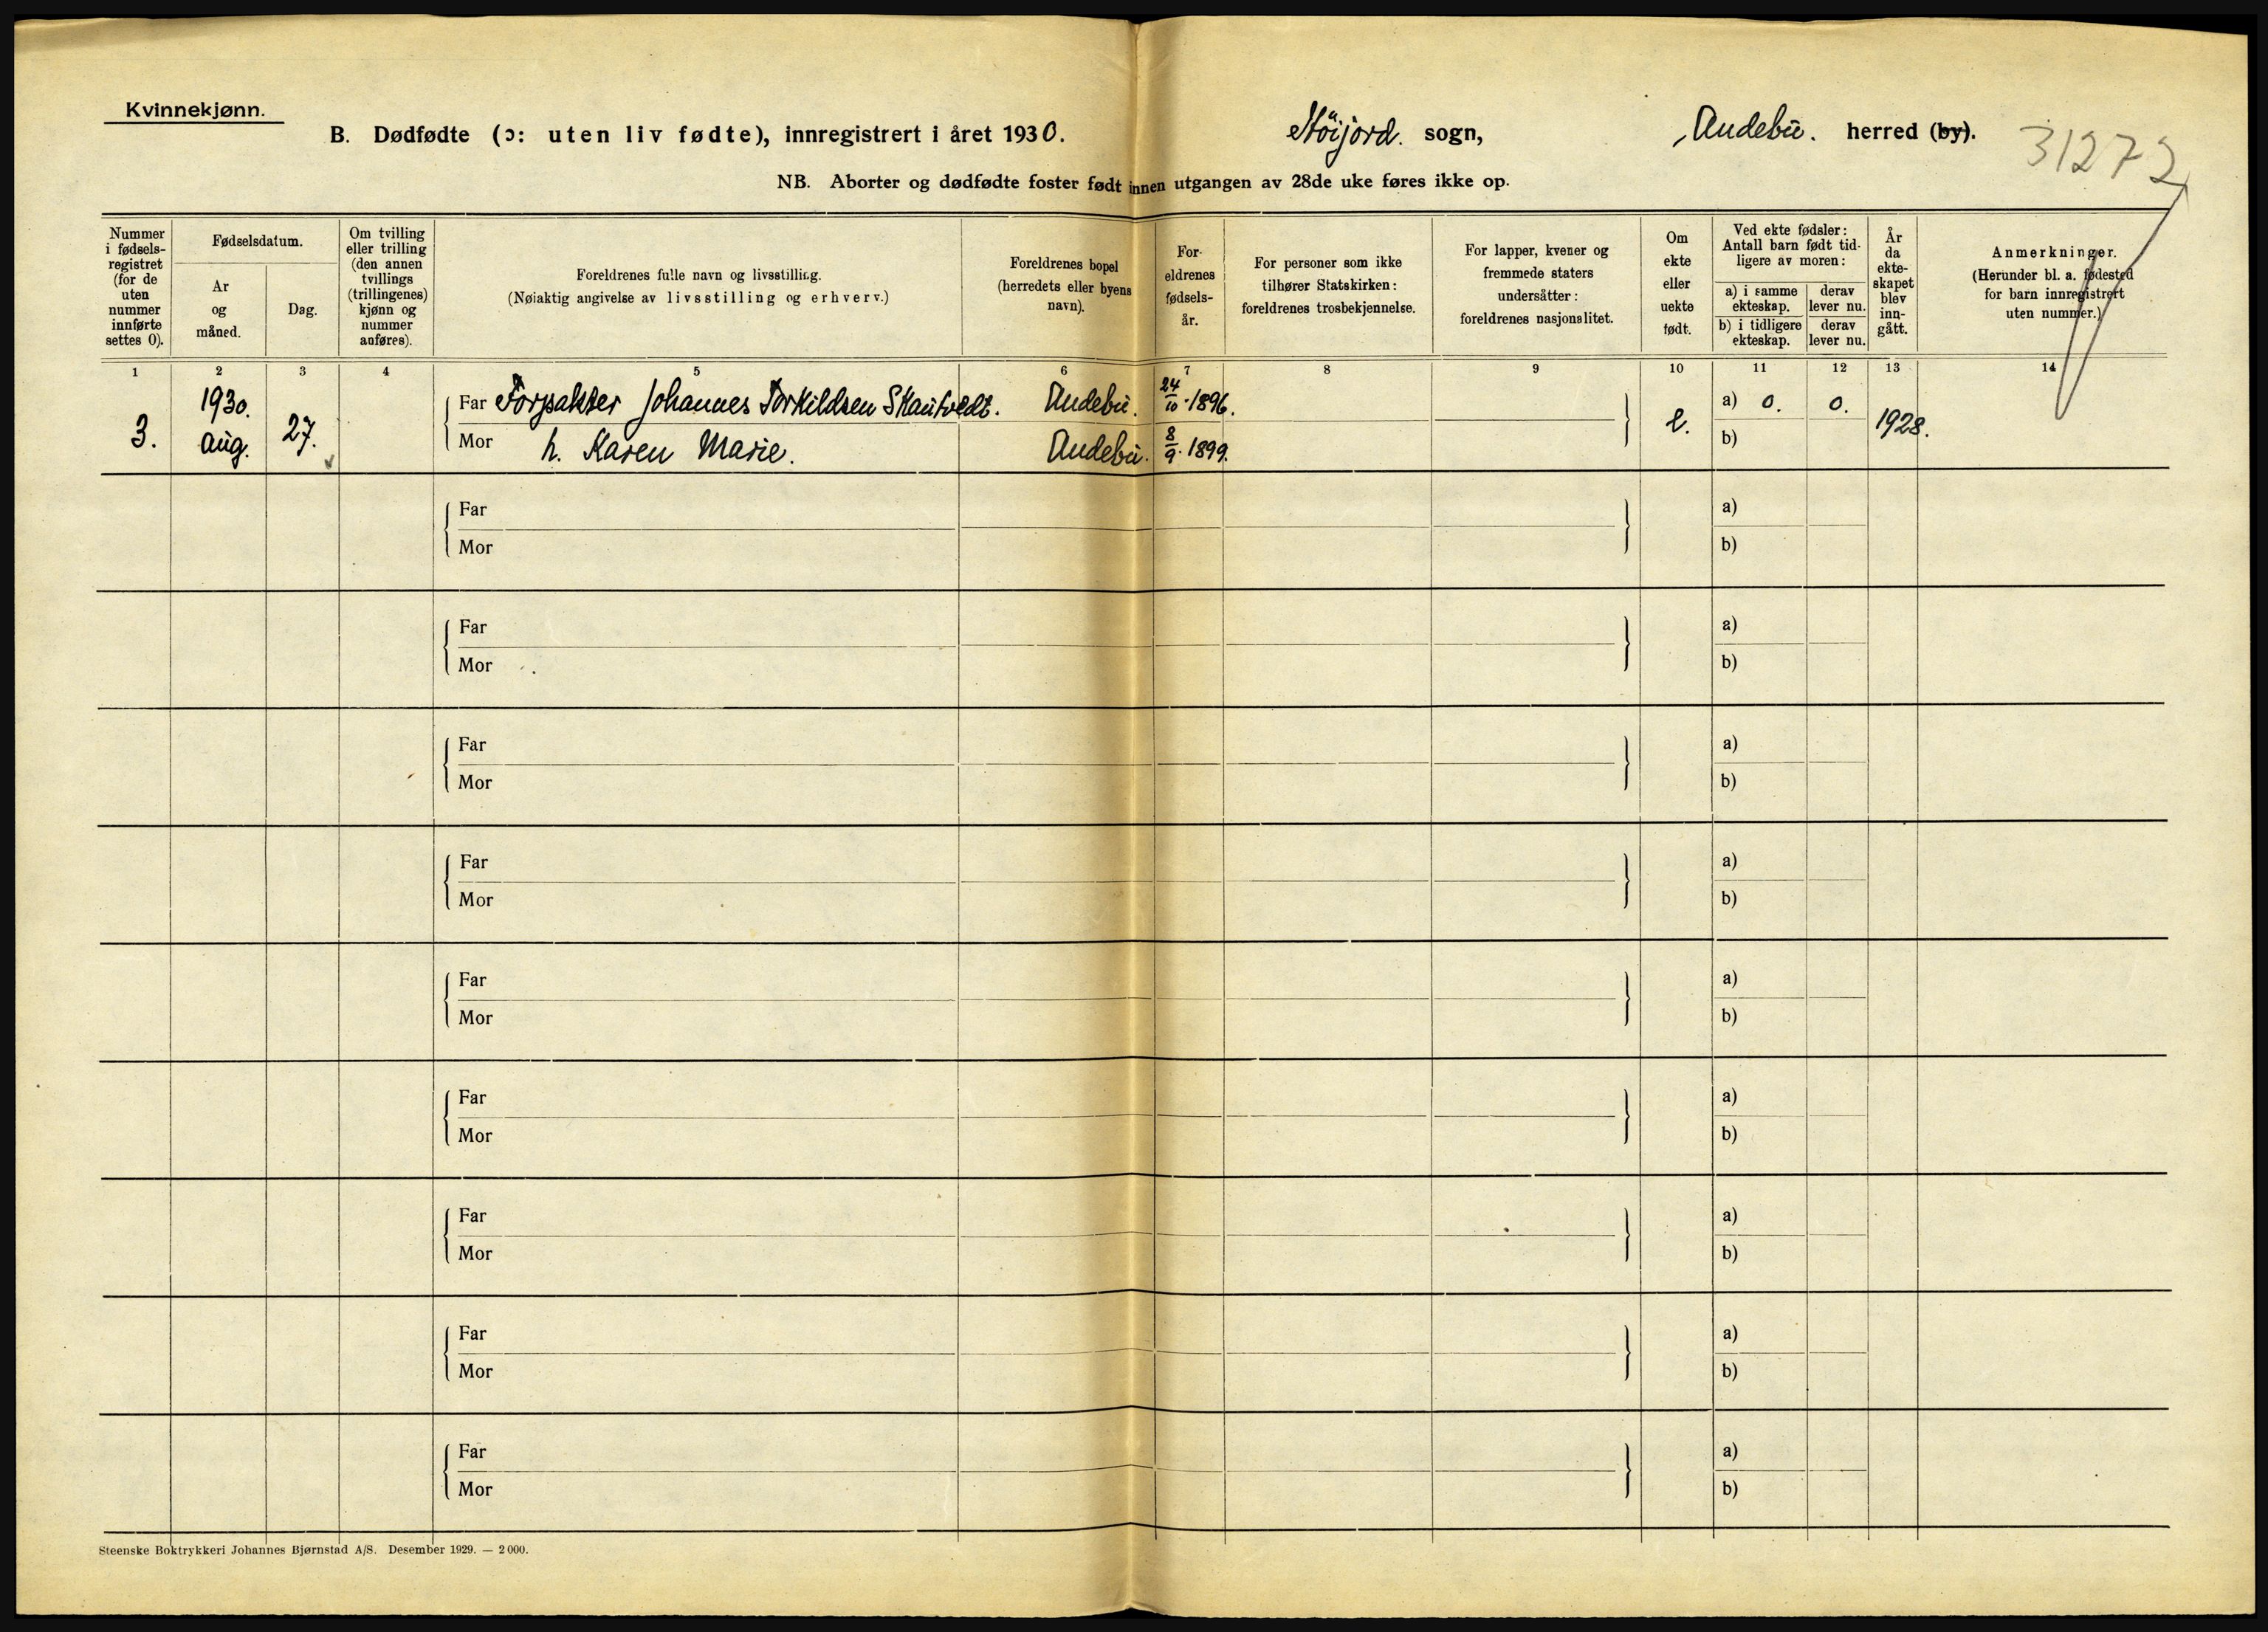 Kvinnekjønn.
B. Dødfødte (ɔ: uten liv fødte), innregistrert i året 1930. Höijord. sogn, Andebu. herred (by).
31272
NB. Aborter og dødfødte foster født innen utgangen av 28de uke føres ikke op.
Nummer i fødsels-registret (for de uten nummer innførte settes 0).
Fødselsdatum.
År og måned.
Dag.
Om tvilling eller trilling (den annen tvillings (trillingenes) kjønn og nummer anføres).
Foreldrenes fulle navn og livsstilling.
(Nøiaktig angivelse av livsstilling og erhverv.)
Foreldrenes bopel (herredets eller byens navn).
For-eldrenes fødsels-år.
For personer som ikke tilhører Statskirken: foreldrenes trosbekjennelse.
For lapper, kvener og fremmede staters undersåtter: foreldrenes nasjonalitet.
Om ekte eller uekte født.
Ved ekte fødsler: Antall barn født tid-ligere av moren:
a) i samme ekteskap.
derav lever nu.
b) i tidligere ekteskap.
derav lever nu.
År da ekte-skapet blev inn-gått.
Anmerkninger.
(Herunder bl. a. fødested for barn innregistrert uten nummer.)
1 2 3 4 5 6 7 8 9 10 11 12 13 14
3. 1930. aug. 27.
Far Forpakter Johannes Torkildsen Skautvedt. Andebu. 24/10. 1896.
Mor h. Karen Marie. Andebu. 8/9. 1899.
e. a) 0. 0. 1928.
b)
Far a)
Mor b)
Far a)
Mor b)
Far a)
Mor b)
Far a)
Mor b)
Far a)
Mor b)
Far a)
Mor b)
Far a)
Mor b)
Far a)
Mor b)
Far a)
Mor b)
Steenske Boktrykkeri Johannes Bjørnstad A/S. Desember 1929. — 2 000.